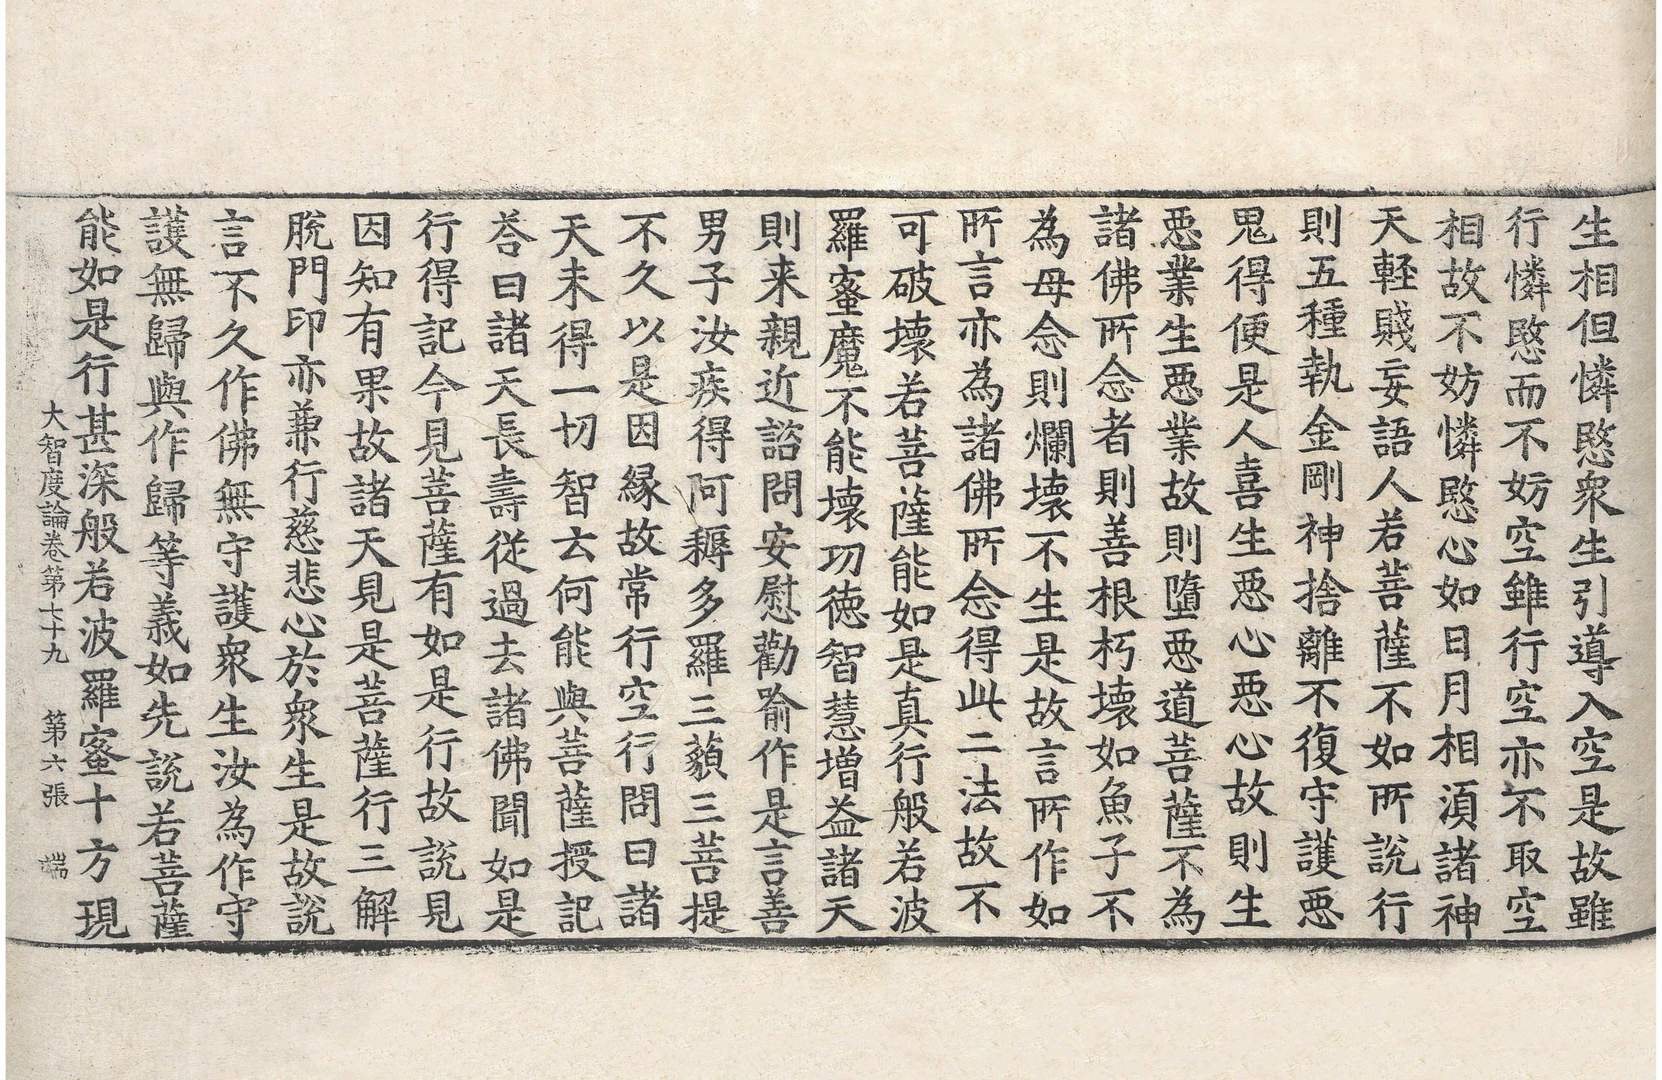 生相但憐愍衆生引導入空是故雖
行憐愍而不妨空雖行空亦不取空
相故不妨憐愍心如日月相湏諸神
天軽賤妄語人若菩薩不如所說行
則五種執金剛神捨離不復守護惡
鬼得便是人喜生惡心惡心故則生
惡業生惡業故則墮惡道菩薩不為
諸佛所念者則善根朽壞如魚子不
為母念則爛壞不生是故言所作如
所言亦為諸佛所念得此二法故不
可破壞若菩薩能如是真行般若波
羅蜜魔不能壞功徳智慧增益諸天
則来親近諮問安慰勸喻作是言善
男子汝疾得阿耨多羅三藐三菩提
不久以是因縁故常行空行問曰諸
天未得一切智云何能與菩薩授記
荅曰諸天長壽從過去諸佛聞如是
行得記今見菩薩有如是行故說見
因知有果故諸天見是菩薩行三解
脫門印亦兼行慈悲心於衆生是故說
言不久作佛無守護衆生汝為作守
護無歸與作歸等義如先說若菩薩
能如是行甚深般若波羅蜜十方現
大智度論卷第七十九　第六張　端